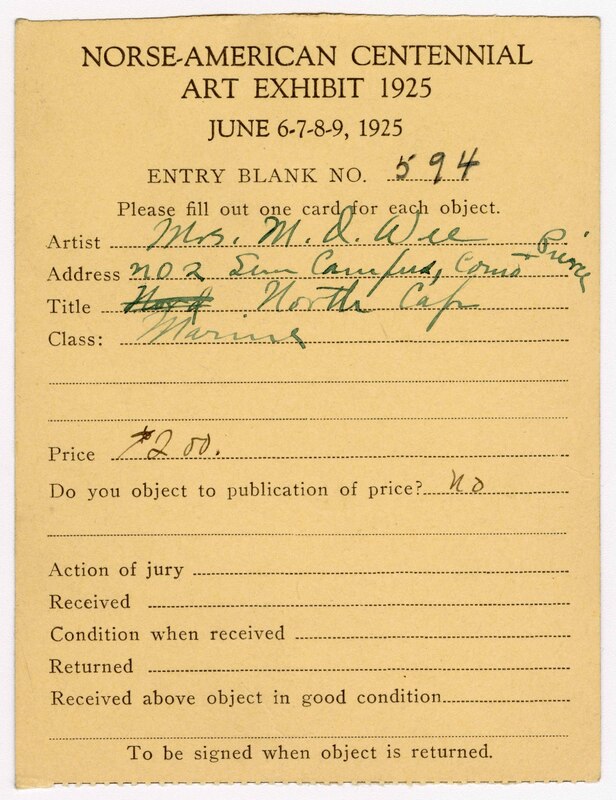 NORSE-AMERICAN CENTENNIAL
ART EXHIBIT 1925
JUNE 6-7-8-9, 1925
ENTRY BLANK NO. 594
Please fill out one card for each object.
Artist Mrs. M. O. Wee
Address No 2 Sem Campus, Como + Pierce
Title North Cape
Class: Marine
Price $200.
Do you object to publication of price? no
Action of jury
Received
Condition when received
Returned
Received above object in good condition
To be signed when object is returned.